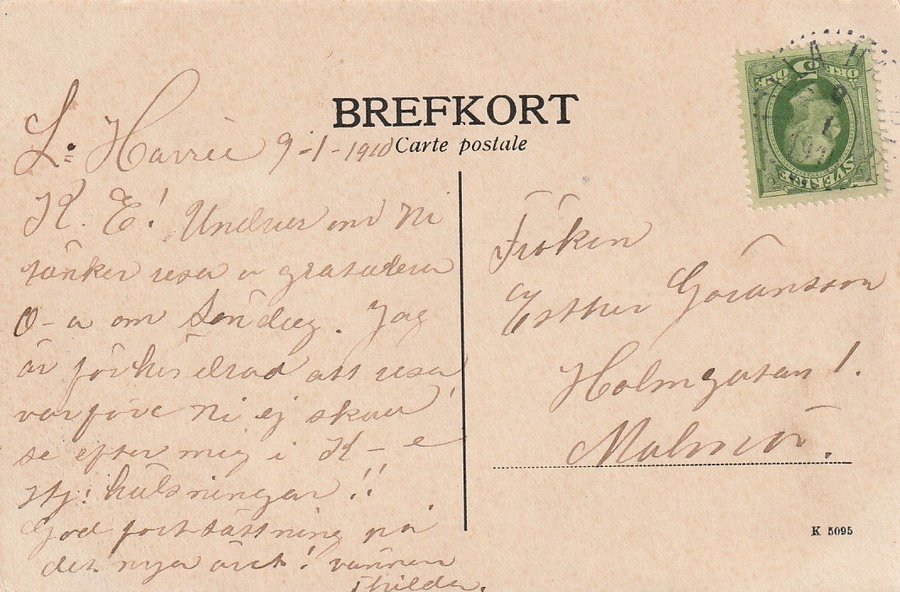 BREFKORT
Carte postale
L. Harrie 9-1-1910
K. E! Undrar om Ni
tänker resa o gratulera
O-a om Söndag. Jag
är förhindrad att resa
varföre Ni ej skall
se efter mig i K-e
Hj. hälsningar!!
God fortsättning på
det nya året! vännen
Thilda.
Fröken
Esther Göransson
Holmgatan 1.
Malmö.
K 5095
ÖRE 5 ÖRE
SVERIGE